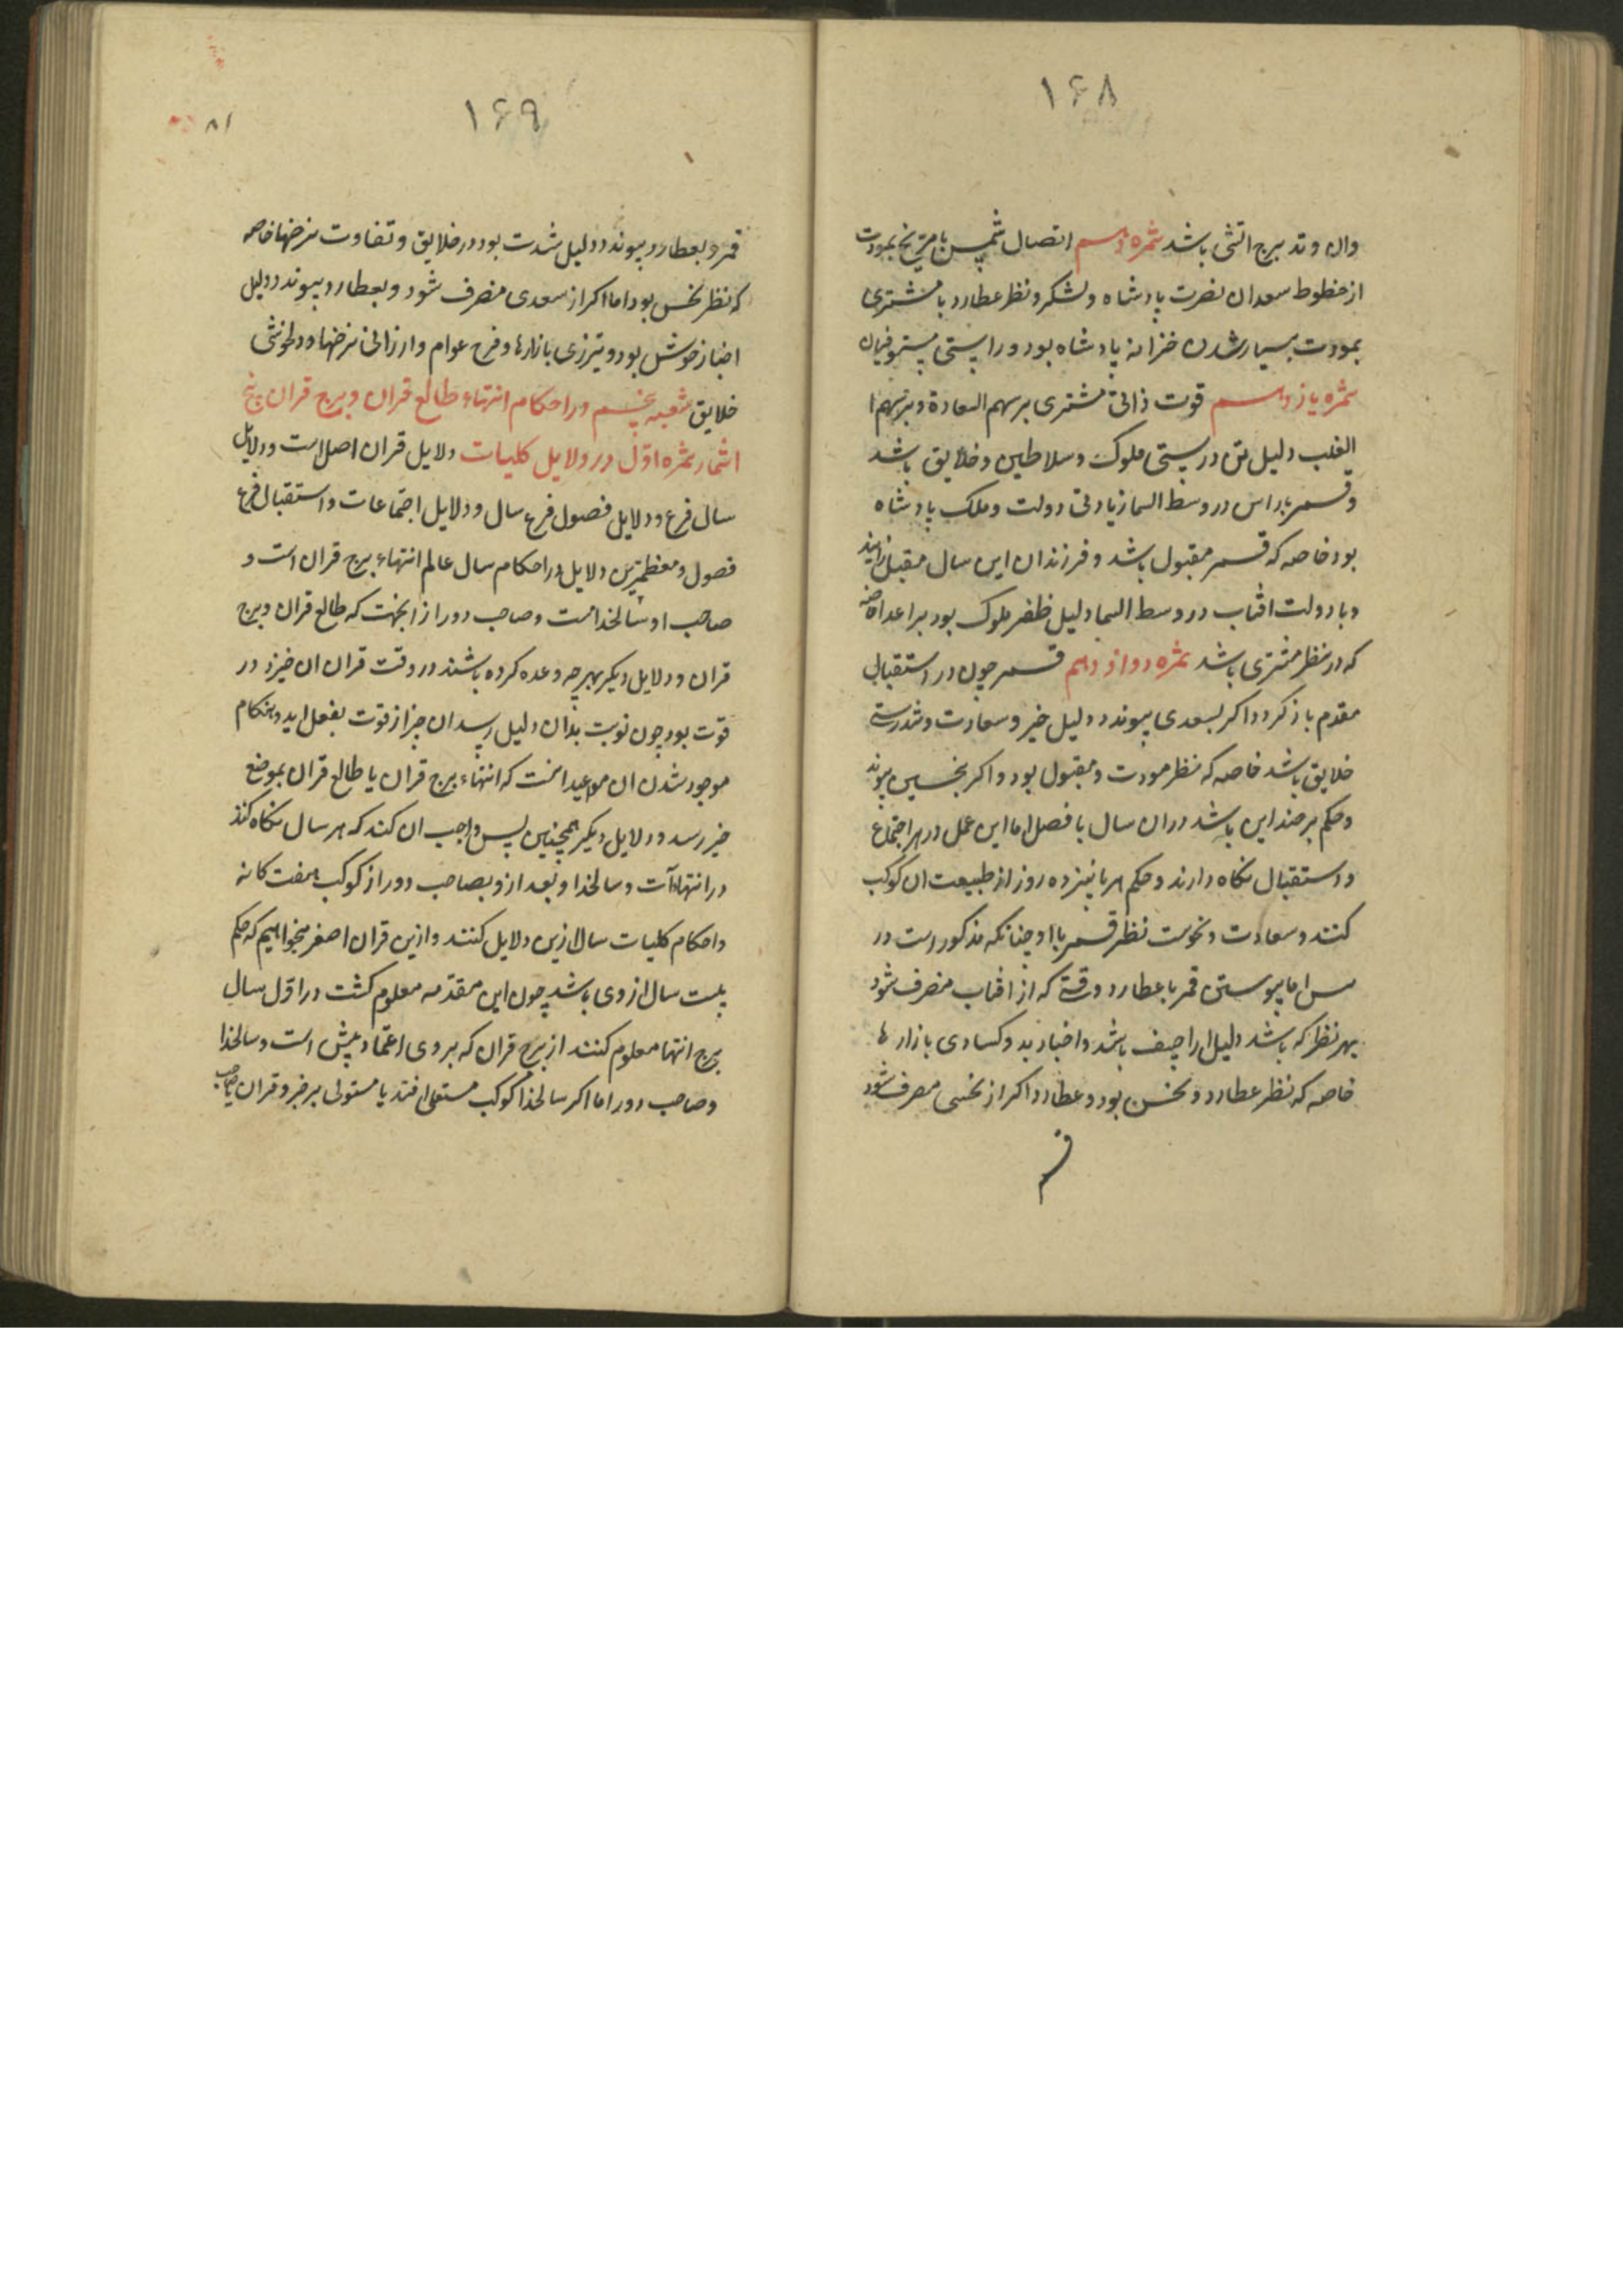 ۱۶۸
وان وتد برج اتشی باشد ثمره دهم اتصال شمس با مریخ بمودت
از خطوط سعدان نصرت پادشاه و لشکر و نظر عطارد با مشتری
بمودت بسیار شدن خزانه پادشاه بود و راستی مستوفیان
ثمره یازدهم قوت ذاتی مشتری بر سهم السعادة و بر سهم ا
لغلب دلیل تن درستی ملوک و سلاطین و خلایق باشد
و قمر براس در وسط السما زیادتی دولت و ملک پادشاه
بود خاصه که قمر مقبول باشد و فرزندان این سال مقبل زایند
وبا دولت افتاب در وسط السما دلیل ظفر ملوک بود بر اعدا خاصه
که در نظر مشتری باشد ثمره دوازدهم قمر چون در استقبال
مقدم باز کردد اکر بسعدی پیوندد دلیل خیر و سعادت و تندرستی
خلایق باشد خاصه که نظر مودت و مقبول بود و اکر بنحسی پیوند
و حکم بر ضد این باشد در ان سال یا فصل اما این عمل در هر اجتماع
و استقبال نکاه دارند و حکم هر پانزده روز از طبیعت ان کوکب
کنند و سعادت و نحوست نظر قمر با او چنانکه مذکور است در
اما پیوستن قمر با عطارد وقتی که از افتاب منصرف شود
بهر نظر که باشد دلیل اراجیف باشد و اخبار بد و کسادی بازارها
خاصه که نظر عطارد و نحس بود و عطارد اکر از نحسی مصرف شود
قمر
۱۶۹
۸۱
قمر و بعطارد پیوندد دلیل شدت بود در خلایق و تفاوت نرخها خاصه
که نظر نحس بود اما اکر از سعدی منصرف شود و بعطارد پیوندد دلیل
اخبار خوش بود و تیزی بازارها و فرح عوام و ارزانی نرخها و دلخوشی
خلایق شعبه پنجم در احکام انتهاء طالع قران و برج قران پنج
اثمار ثمره اوّل در دلایل کلیات دلایل قران اصل است و دلایل
سال فرع و دلایل فصول فرع سال و دلایل اجتماعات و استقبال فرع
فصول و معظمترین دلایل در احکام سال عالم انتهاء برج قران است و
صاحب او سالخداست و صاحب دور از انجهت که طالع قران و برج
قران و دلایل دیکر بهرچه وعده کرده باشند در وقت قران ان خیز در
قوت بود چون نوبت بدان دلیل رسد ان چیز از قوت بفعل اید و هنکام
موجود شدن ان مواعید انست که انتهاء برج قران یا طالع قران بموضع
خیر رسد و دلایل دیکر همچنین پس واجب ان کند که هر سال نکاه کند
در انتهاآت و سالخدا و بعد ازو بصاحب دور از کوکب هفت کانه
و احکام کلیات سال ازین دلایل کنند و ازین قران اصغر میخواهیم که حکم
بیست سال از وی باشد چون این مقدّمه معلوم کشت در اوّل سال
برج انتها معلوم کنند از برج قران که بر وی اعتماد بیش است و سالخدا
و صاحب دور اما اکر سالخدا کوکب مستعلی افتد یا مستولی بر جزو قران یا صاحب